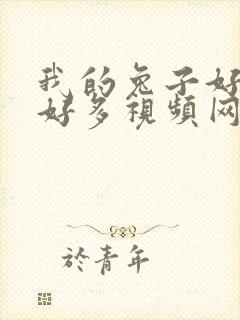 我的兔子好
好多視頻网
於青年